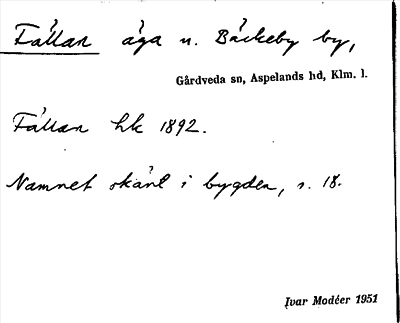 Fállan äga u. Bäckeby by,
Gårdveda sn, Aspelands hd, Klm. l.
Fállan hk 1892.
Namnet okänt i bygden, s. 18.
Ivar Modéer 1951